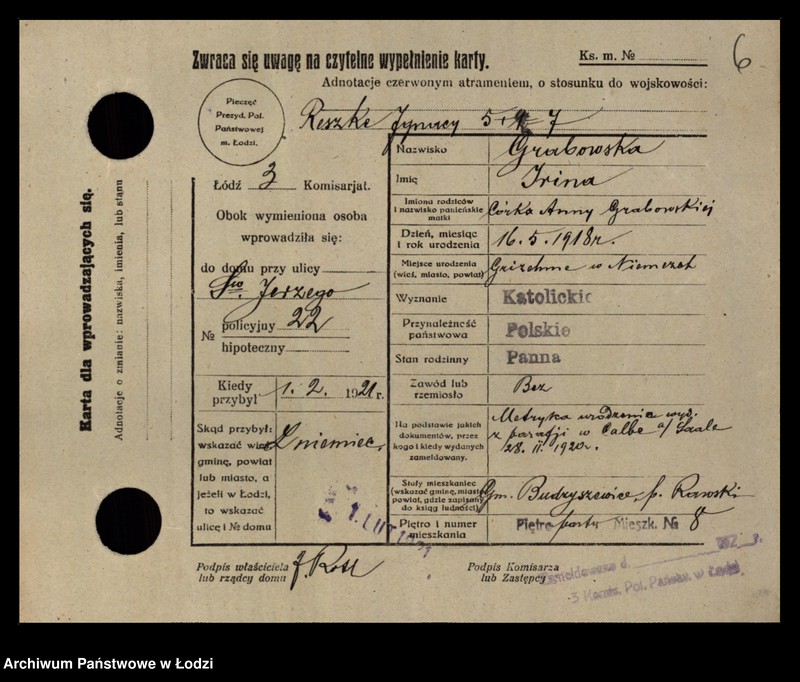 Zwraca się uwagę na czytelne wypełnienie karty.
Ks. m. №
6
Adnotacje czerwonym atramentem, o stosunku do wojskowości:
Pieczęć
Prezyd. Pol.
Państwowej
m. Łodzi.
Reszke Ignacy
Łódź 3 Komisarjat.
Obok wymieniona osoba
wprowadziła się:
do domu przy ulicy
Św. Jerzego
№ policyjny 22
hipoteczny
Kiedy przybył 1. 2. 1921 r.
Skąd przybył:
wskazać wieś,
gminę, powiat
lub miasto, a
jeżeli w Łodzi,
to wskazać
ulicę i № domu
Z niemiec
Nazwisko Grabowska
Imię Irina
Imiona rodziców
i nazwisko panieńskie
matki
Córka Anny Grabowskiej
Dzień, miesiąc
i rok urodzenia
16. 5. 1918 r.
Miejsce urodzenia
(wieś, miasto, powiat)
Grizehne w Niemczech
Wyznanie Katolickie
Przynależność
państwowa
Polskie
Stan rodzinny Panna
Zawód lub
rzemiosło
Bez
Na podstawie jakich
dokumentów, przez
kogo i kiedy wydanych
zameldowany.
Metryka urodzenia wyd.
z parafji w Calbe a/ Saale
28. II. 1920 r.
Stały mieszkaniec
(wskazać gminę, miasto
powiat, gdzie zapisany
do ksiąg ludności)
Gm. Budzyszewice, p. Rawski
Piętro i numer
mieszkania
Piętro part. Mieszk. № 8
Podpis właściciela
lub rządcy domu
Podpis Komisarza
lub Zastępcy
Zameldowano d. 192 r.
3 Komis. Pol. Państw. w Łodzi
Karta dla wprowadzających się.
Adnotacje o zmianie: nazwiska, imienia, lub stanu
Archiwum Państwowe w Łodzi